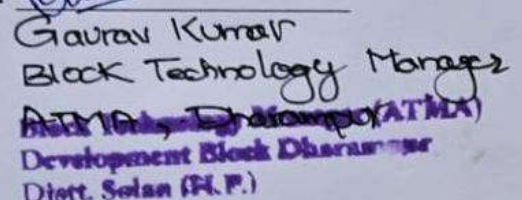 Gaurav Kumar
Block Technology Manager
ATMA, Dharampur
Block Technology Manager (ATMA)
Development Block Dharampur
Distt. Solan (H.P.)